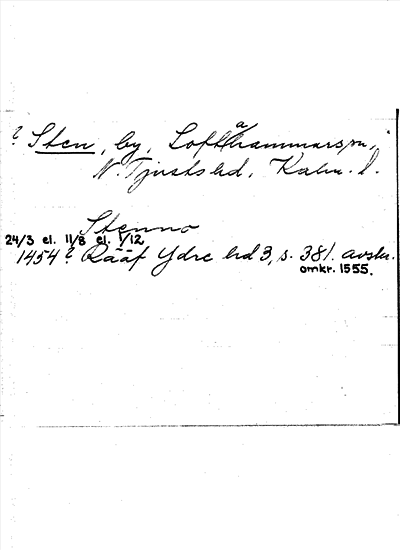 ? Sten, by, Lofta
hammarssn,
N. Tjusts hd, Kalm. l.
Stenno
24/3 el. 11/8 el. 1/12
1454? Rääf Ydre hd 3, s. 381. avskr.
omkr. 1555.